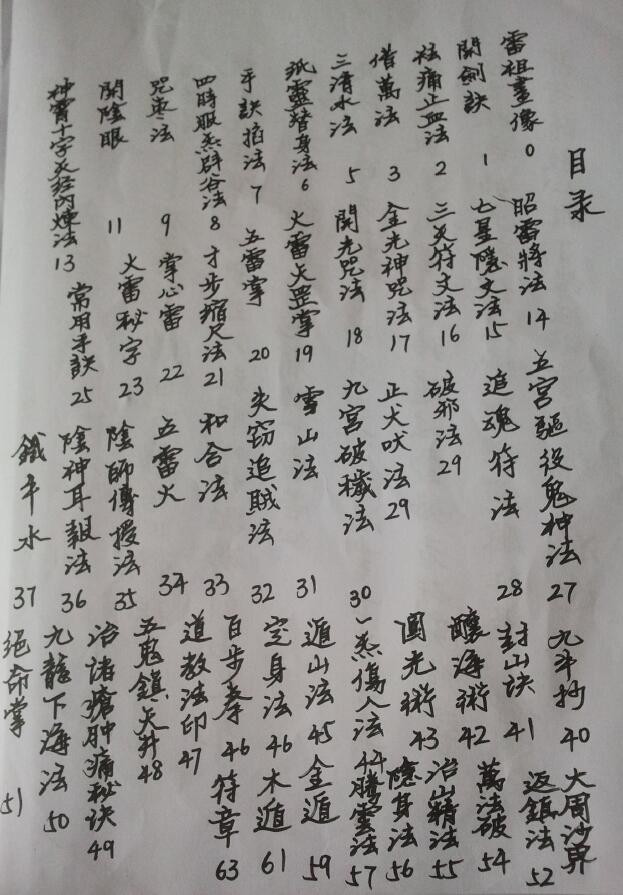 目录
雷祖畫像 0
開劍訣 1
祛痛止血法 2
借萬法 3
三清水法 5
紙靈替身法 6
手訣掐法 7
四時服炁辟谷法 8
咒枣法 9
開陰眼 11
神霄十字天经内煉法 13
昭雷將法 14
七星隱文法 15
三天符文法 16
金光神咒法 17
開光咒法 18
火雷天罡掌 19
五雷掌 20
才步缩尺法 21
掌心雷 22
火雷秘字 23
常用手訣 25
五宫驅役鬼神法 27
追魂符法 28
破邪法 29
正犬吠法 29
九宫破穢法 30
雪山法 31
失窃追賊法 32
和合法 33
五雷火 34
陰師傳授法 35
陰神耳報法 36
鐵牛水 37
九斗抄 40
封山诀 41
釀海術 42
圓光術 43
一炁傷人法 44
遁山法 45
定身法 46
百步拳 46
道教法印 47
五鬼鎮天升 48
治諸瘡肿痛秘诀 49
九龍下海法 50
絕命掌 51
大周沙昇
返鎮法 52
萬法破 54
治山精法 55
隱身法 56
騰雲法 57
金遁 59
木遁 61
符章 63